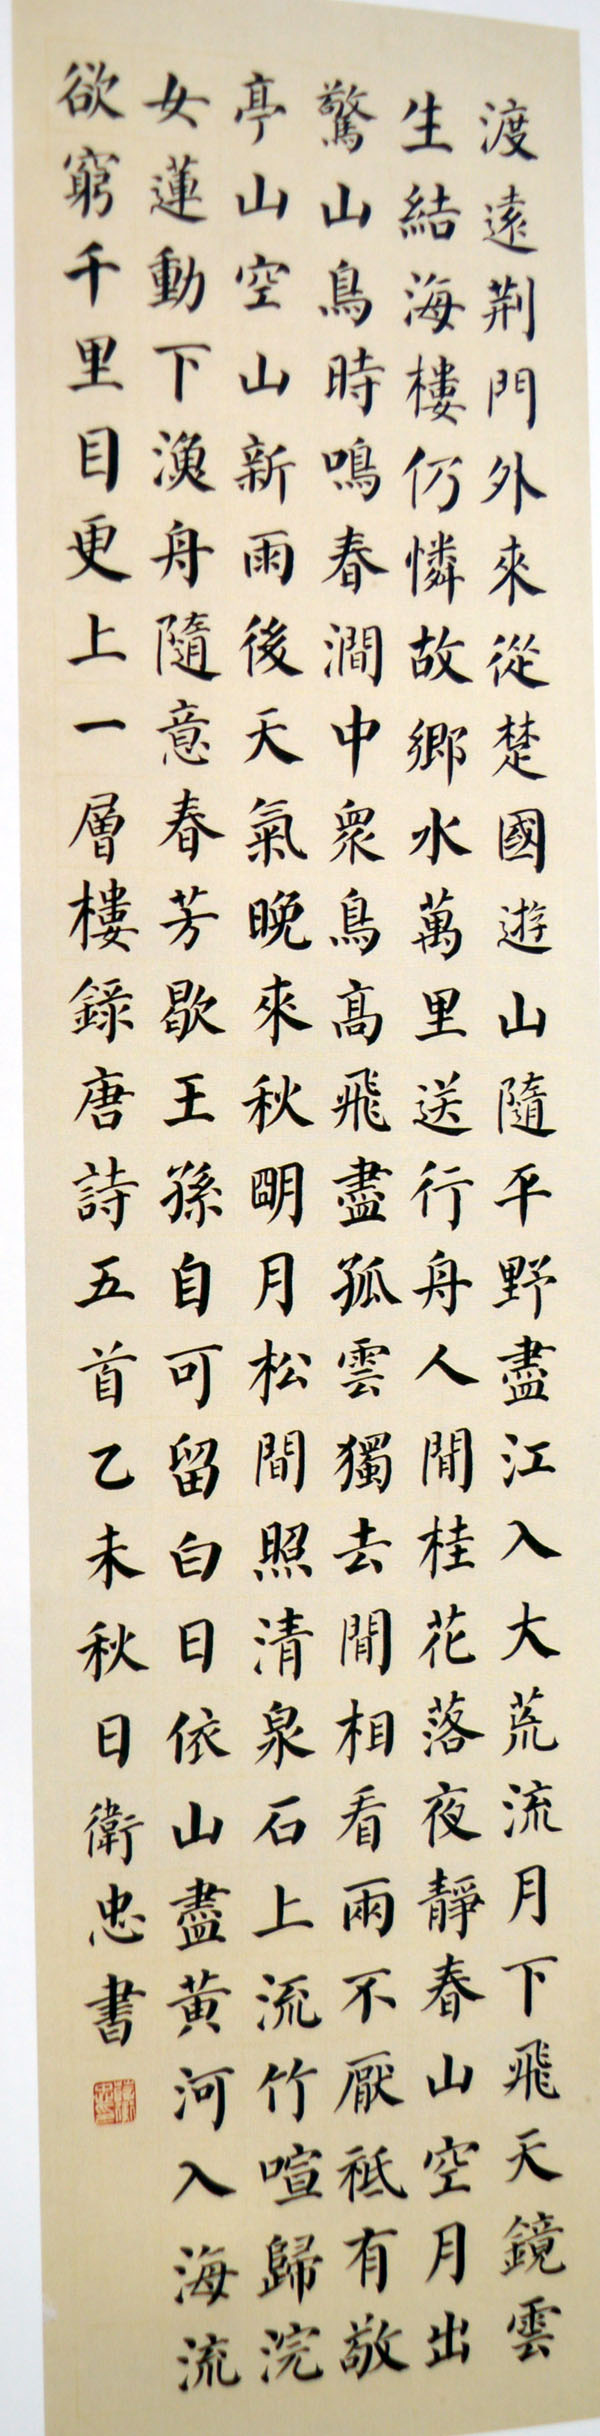 渡遠荆門外來從楚國遊山隨平野盡江入大荒流月下飛天鏡雲
生結海樓仍憐故鄉水萬里送行舟人閒桂花落夜靜春山空月出
驚山鳥時鳴春澗中眾鳥高飛盡孤雲獨去閒相看兩不厭祗有敬
亭山空山新雨後天氣晚來秋朙月松間照清泉石上流竹喧歸浣
女蓮動下漁舟隨意春芳歇王孫自可留白日依山盡黃河入海流
欲窮千里目更上一層樓錄唐詩五首乙未秋日衛忠書